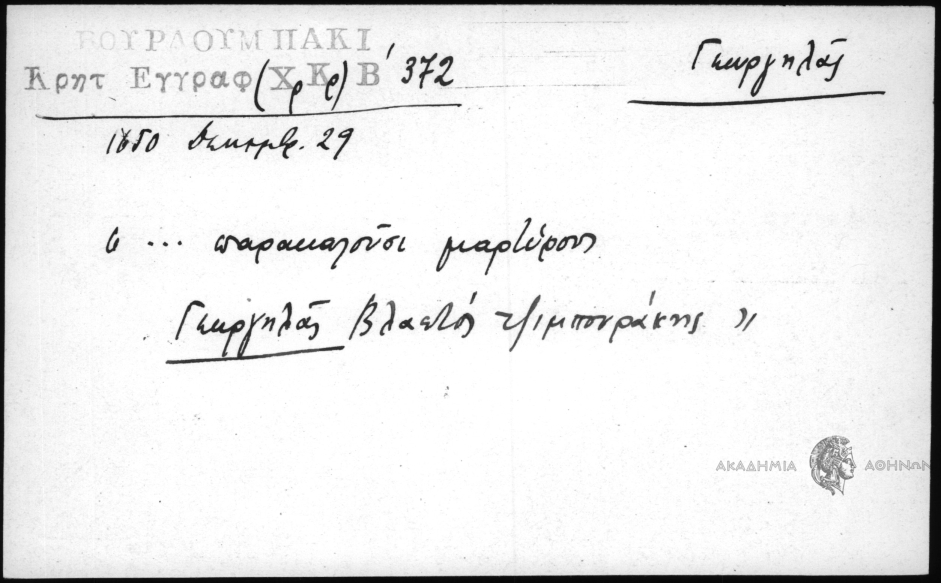 ΒΟΥΡΔΟΥΜΠΑΚΙ
Κρητ Εγγραφ (ΧΚΒ' 372
Γεωργηλᾶς
1850 Δεκεμβ. 29
« ... παρακαλοῦσι μαρτύρους
Γεωργηλᾶς Βλαστός τζιμπουράκης »
ΑΚΑΔΗΜΙΑ ΑΘΗΝΩΝ